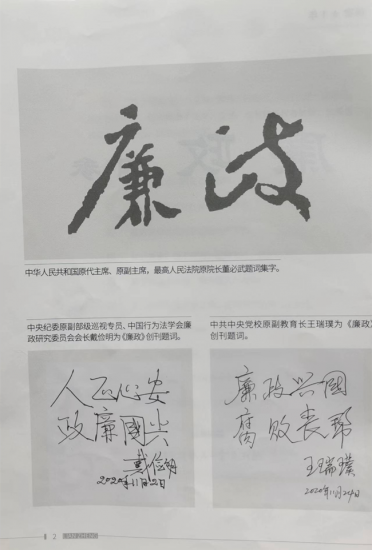 廉政
中华人民共和国原代主席、原副主席，最高人民法院原院长董必武题词集字。
中央纪委原副部级巡视专员、中国行为法学会廉
政研究委员会会长戴俭明为《廉政》创刊题词。
人民心安
政廉國兴
戴俭明
2020年11月2日
中共中央党校原副教育长王瑞璞为《廉政》
创刊题词。
廉政兴國
腐败丧邦
王瑞璞
2020年11月24日
2